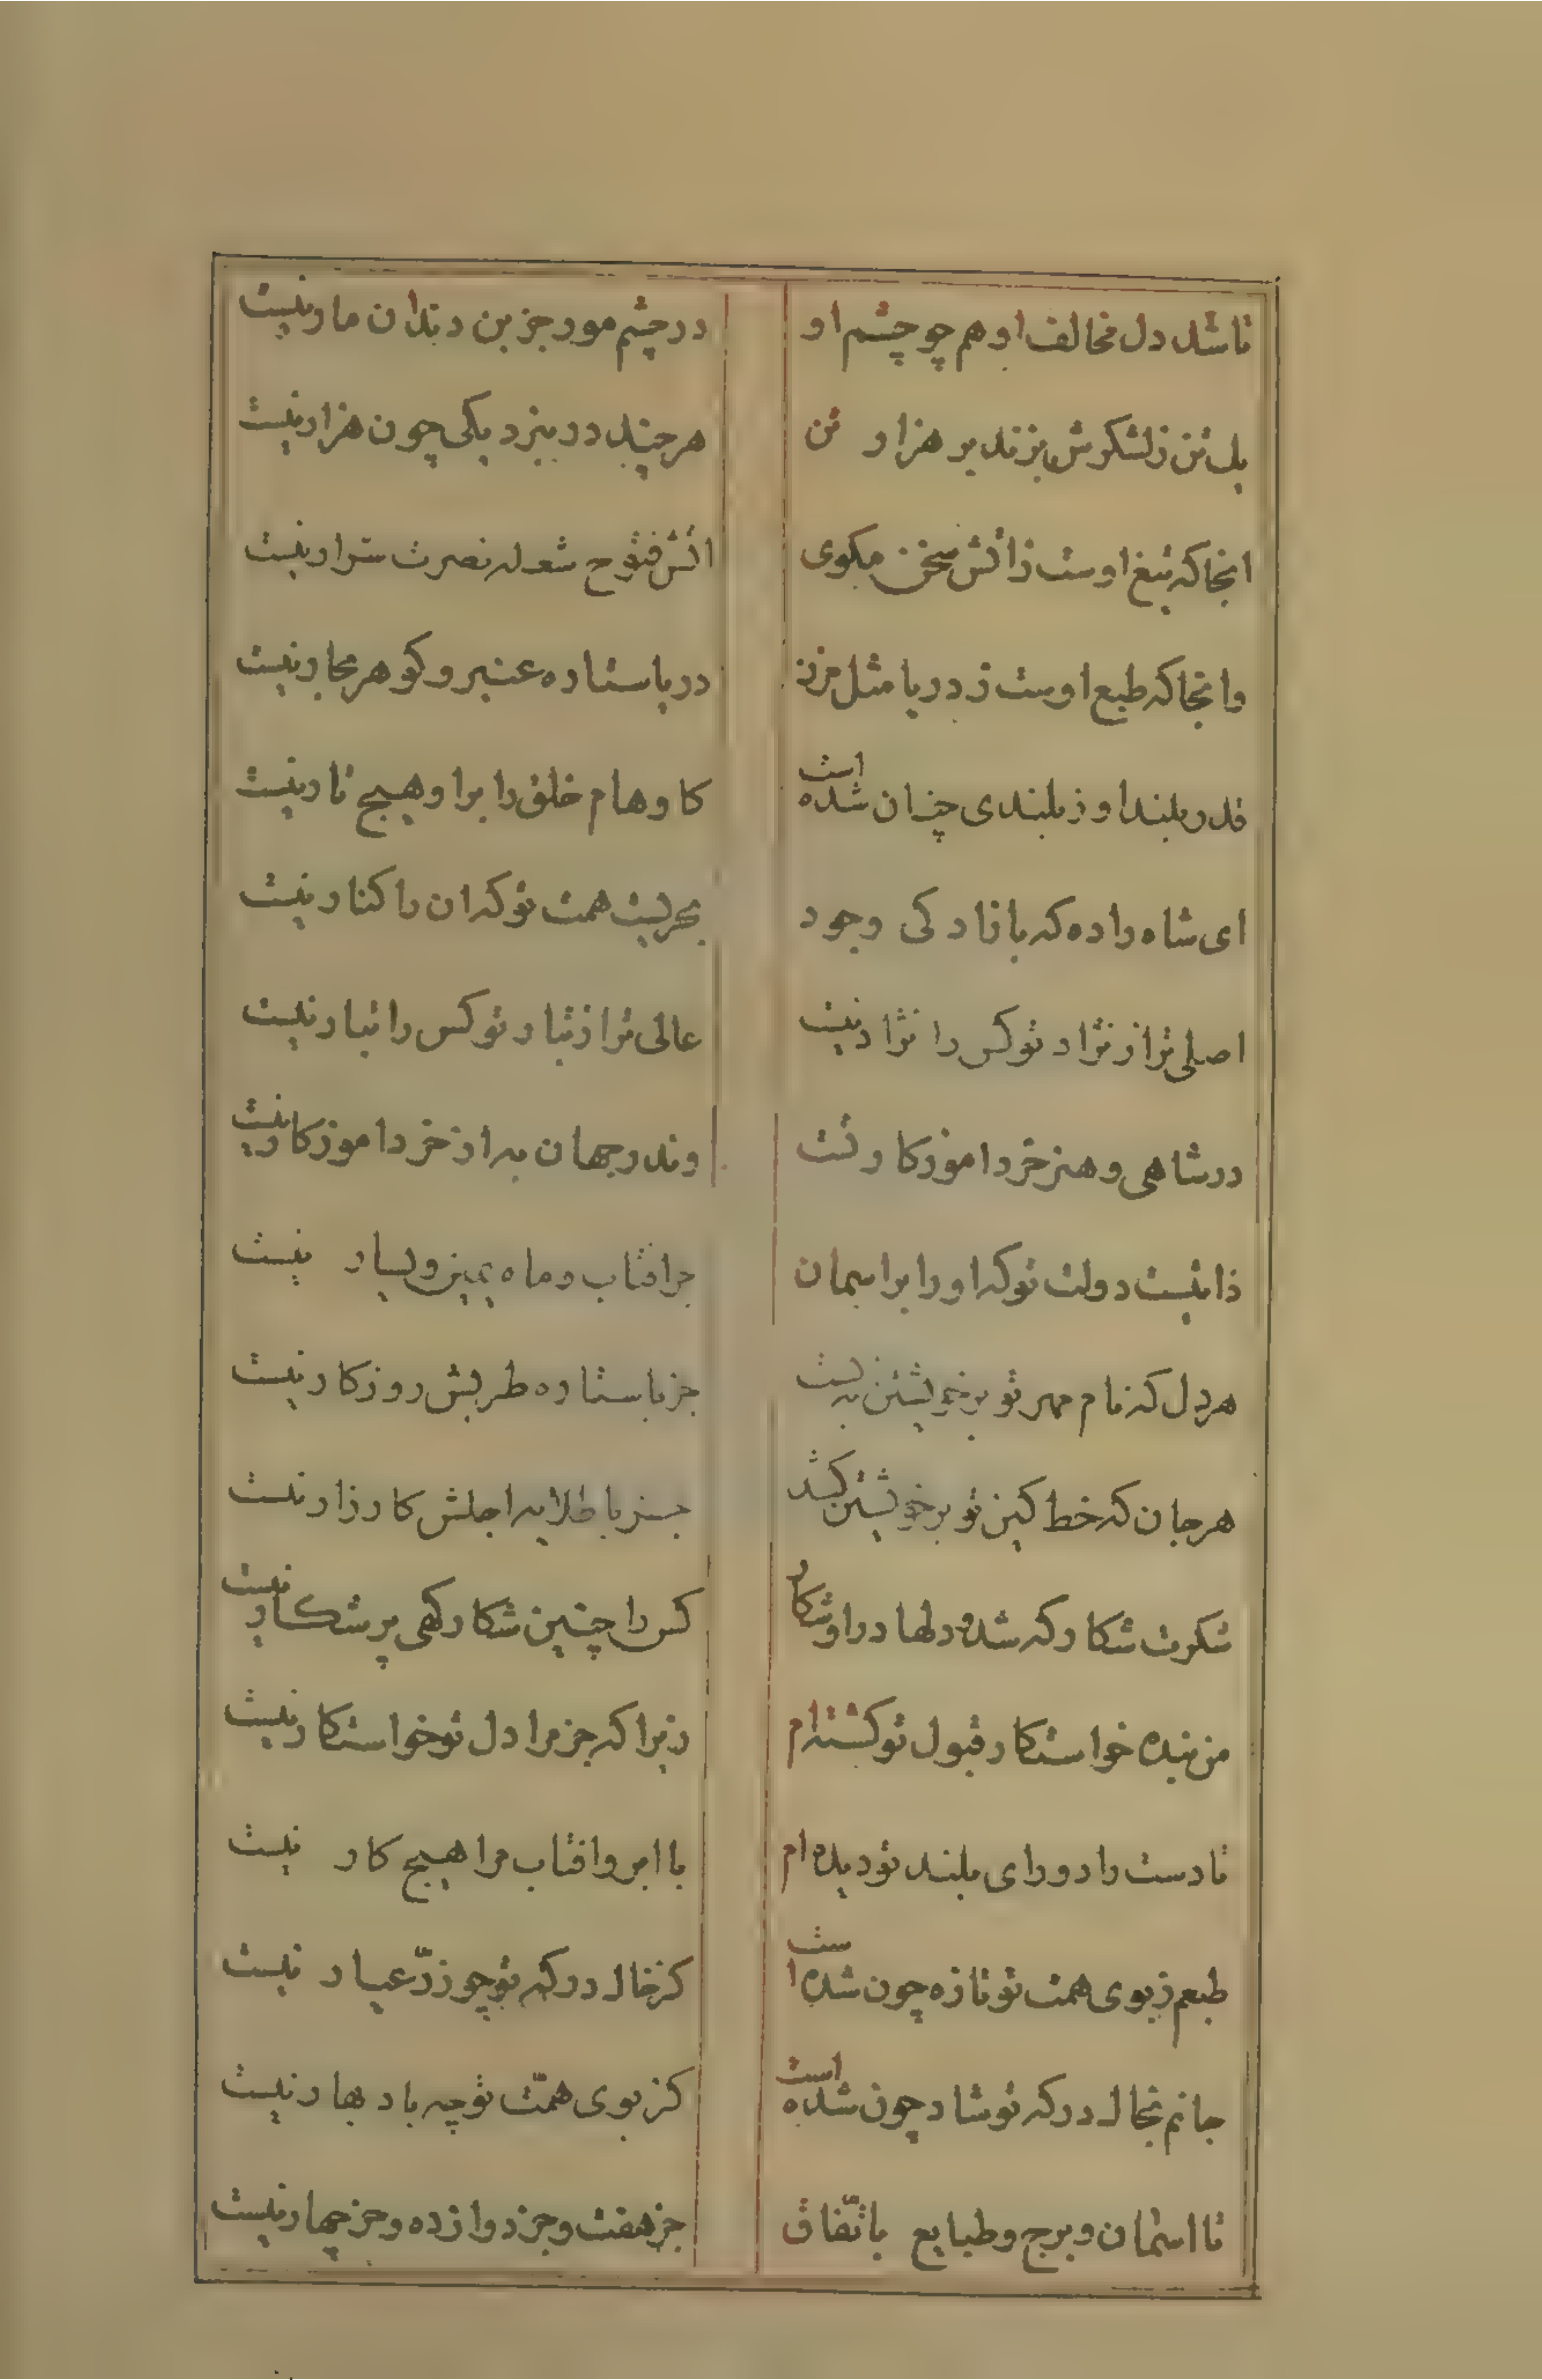 تا شد دل مخالف او هم چو چشم او
در چشم مور جز بن دندان مار نیست
یک تن ز لشکرش بزند بر هزار تن
هر چند در نبرد یکی چون هزار نیست
انجا که تیغ اوست ز اتش سخن مکوی
اتش فتوح شعله نصرت شرار نیست
وانجا که طبع اوست ز دریا مثل مزن
دریا ستاره عنبر و کوهر بخار نیست
قدر بلند او ز بلندی چنان شده است
کاوهام خلق را بر او هیچ بار نیست
ای شاه راده که بازادکی وجود
بحریست همت تو که ان را کنار نیست
اصلی تر از نژاد تو کس را نژاد نیست
عالی تر از تبار تو کس را تبار نیست
در شاهی و هنر خرد اموز کار تست
وندر جهان به از خرد اموزکار نیست
زانیست دولت تو که او را بر اسمان
جز افتاب و ماه یمین و یسار نیست
هر دل که نام مهر تو بر خویشتن نبست
جز با ستاره طربش روزکار نیست
هر جان که خط کین تو بر خویشتن کشد
جز با طلایه اجلش کارزار نیست
شکرت شکار که شده دلها درو شکار
کس را چنین شکارکهی پر شکار نیست
من بنده خواستکار قبول تو کشته‌ام
زیرا که جز مرا دل تو خواستکار نیست
تا دست راد و رای بلند تو دیده ام
با ابر و افتاب مرا هیچ کار نیست
طبعم ز بوی همت تو تازه چون شده است
کز خاک درکه تو چو زرّ عیار نیست
جانم بخاک درکه تو شاد چون شده است
کز بوی همّت تو چه باد بهار نیست
تا اسمان و برج و طبایع باتّفاق
جز هفت و جز دوازده و جز چهار نیست